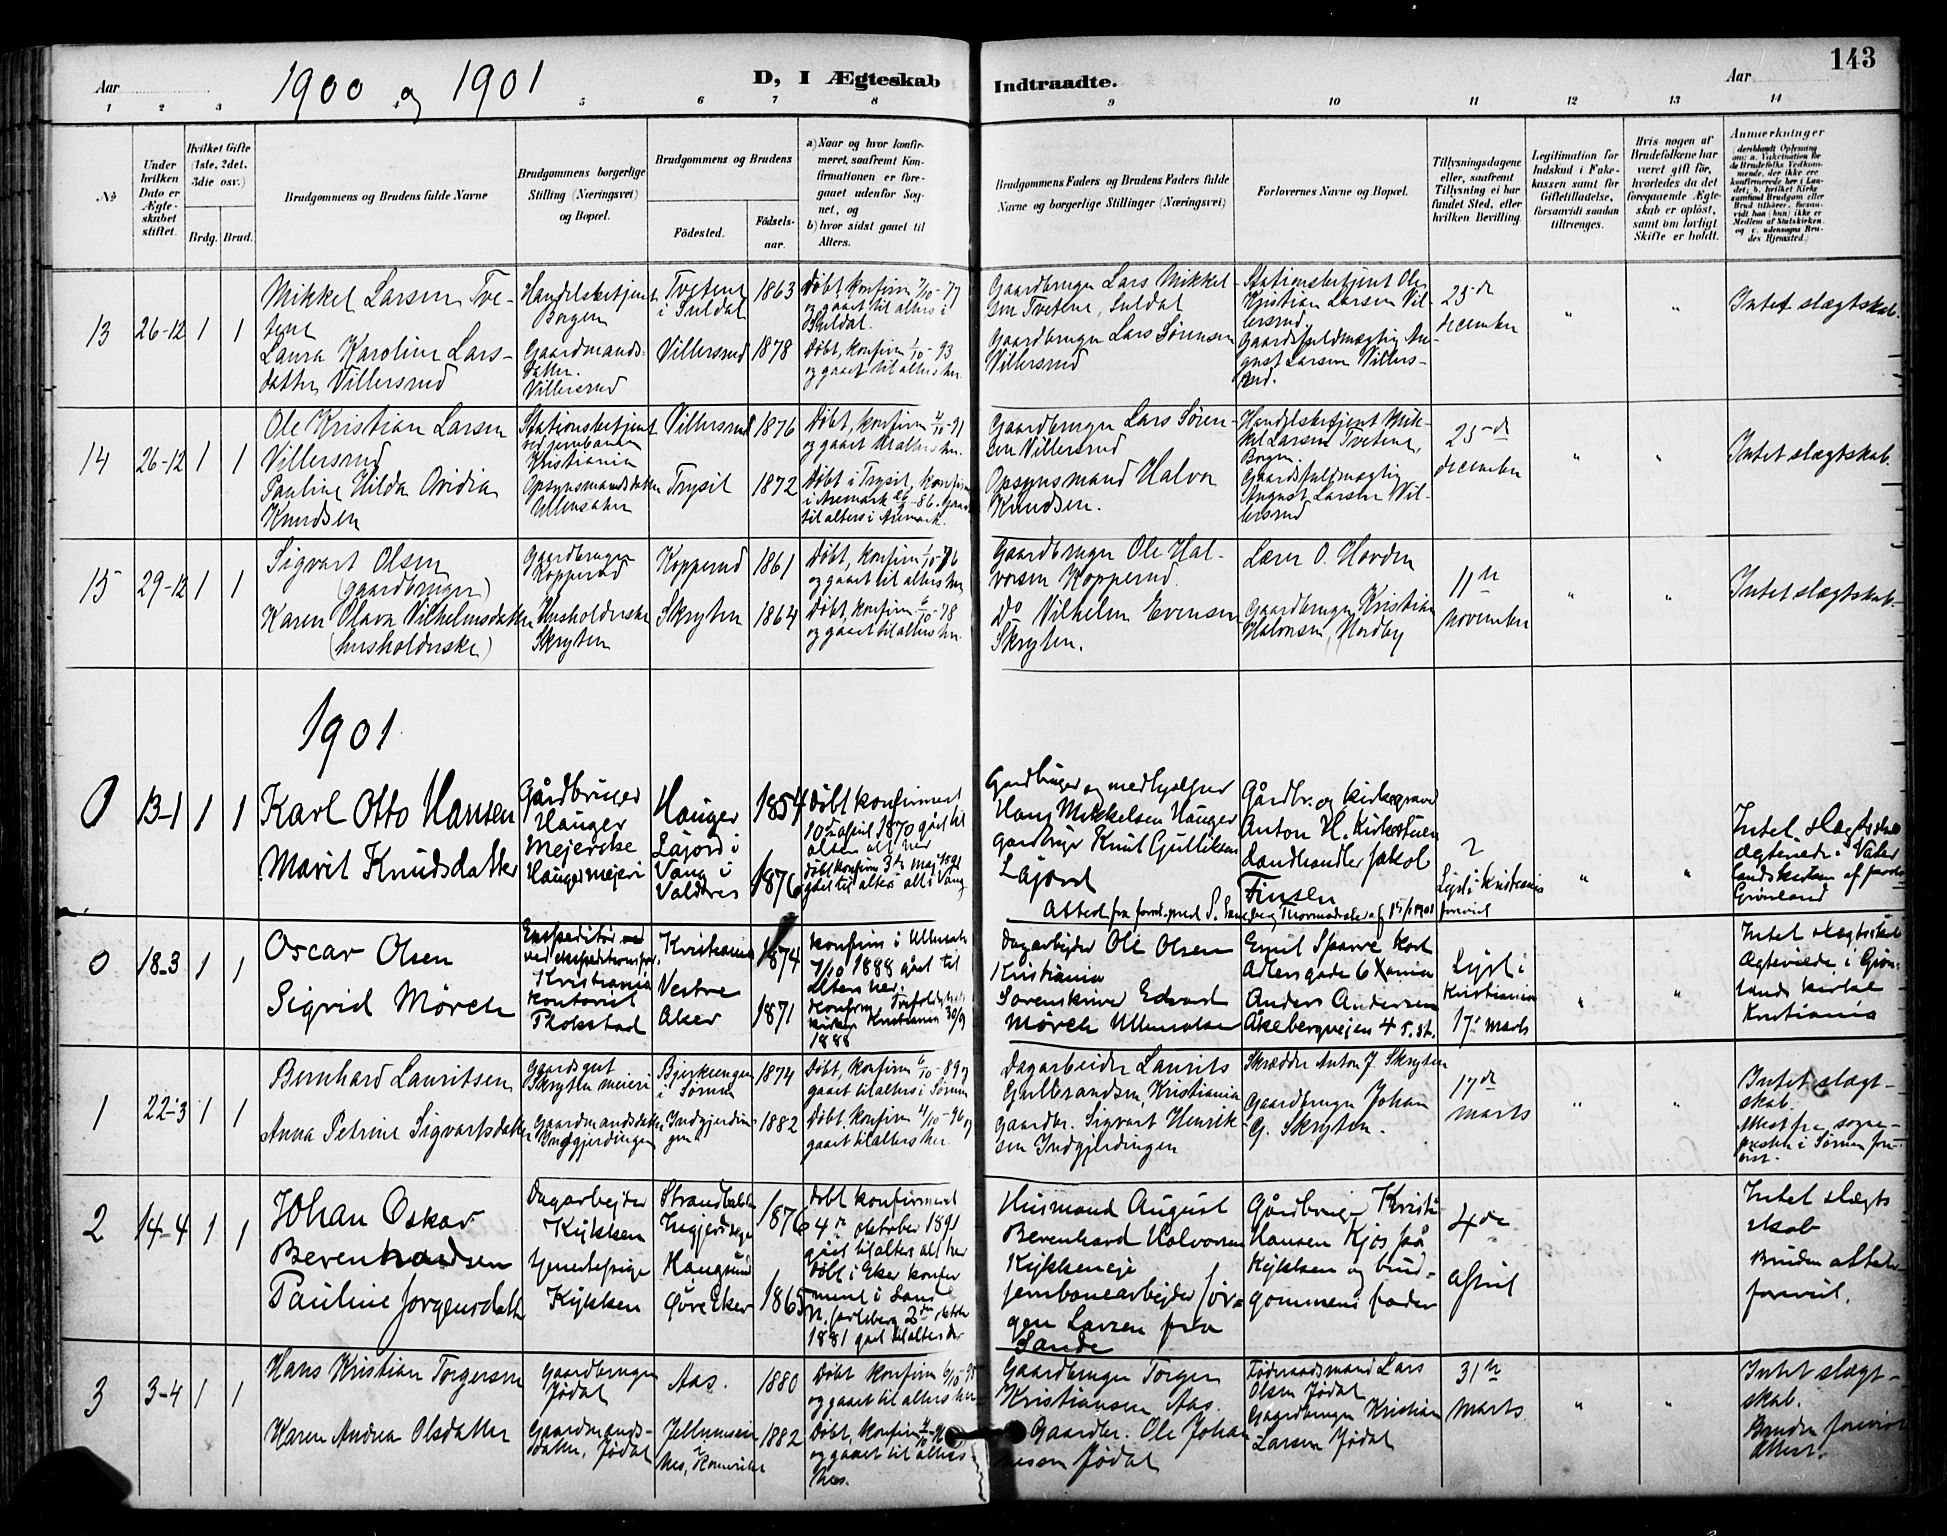 143
Aar
1900 og 1901
D, I Ægteskab
Indtraadte.
Aar
1 2 3 4 5 6 7 8 9 10 11 12 13 14
No
Under hvilken Dato er Ægteskabet stiftet.
Hvilket Gifte (1ste, 2det, 3die osv.)
Brdg. Brud.
Brudgommens og Brudens fulde Navne
Brudgommens borgerlige Stilling (Næringsvei) og Bopæl.
Brudgommens og Brudens
Fødested.
Fødselsaar.
a) Naar og hvor konfirmeret, saafremt Konfirmationen er foregaaet udenfor Sognet, og
b) hvor sidst gaaet til Alters.
Brudgommens Faders og Brudens Faders fulde Navne og borgerlige Stillinger (Næringsvei)
Forlovernes Navne og Bopæl.
Tillysningsdagene eller, saafremt Tillysning ei har fundet Sted, efter hvilken Bevilling.
Legitimation for Indskud i Enkekassen samt for Giftetilladelse, forsaavidt saadan tiltrænges.
Hvis nogen af Brudefolkene har været gift før, hvorledes da det foregaaende Ægteskab er opløst, samt om lovligt Skifte er holdt.
Anmærkninger
13 26-12 1 1
Mikkel Larsen Tvetene
Handelsbetjent Borgen
Tvetene i Suldal
1863
Døbt, konfirm 7/10-77 og gaaet til alters i Suldal.
Gaardbruger Lars Mikkelsen Tvetene, Suldal
Stationsbetjent Ole Kristian Larsen Villersrud.
23de december
"
"
Intet slægtskab.
Laura Karoline Larsdatter Villersrud
Gaardmandsdatter. Villersrud
Villersrud
1878
Døbt, konfirm 1/10-93 og gaaet til alters her.
Gaardbruger Lars Sørensen Villersrud
Gaardsfuldmægtig August Larsen Villersrud.
14 26-12 1 1
Ole Kristian Larsen Villersrud
Stationsbetjent ved jernbanen Kristiania
Villersrud
1876
Døbt, konfirm 4/10-91 og gaaet til alters her.
Gaardbruger Lars Sørensen Villersrud
Handelsbetjent Mikkel Larsen Tvetene, Borgen.
23de december
"
"
Intet slægtskab.
Pauline Hilda Ovidia Knudsen
Opsynsmandsdatter Ullensaker
Trysil
1872
Døbt i Trysil, konfirm i Aremark 26/9-86. Gaaet til alters i Aremark.
Opsynsmand Halvor Knudsen.
Gaardsfuldmægtig August Larsen Villersrud
15 29-12 1 1
Sigvart Olsen
(gaardbruger)
Gaardbruger Kopperud
Kopperud
1861
Døbt, konfirm 1/10-76 og gaaet til alters her
Gaardbruger Ole Halvorsen Kopperud.
Lærer O. Hovden
11te november
"
"
Intet slægtskab.
Karen Olava Vilhelmsdatter
(husholderske)
Husholderske Skryten
Skryten
1864
Døbt, konfirm 6/10-78 og gaaet til alters her.
do Vilhelm Evensen Skryten.
Gaardbruger Kristian Halvorsen, Nordby
1901
0 13-1 1 1
Karl Otto Hansen
Gårdbruger Hauger
Hauger
1854
Døbt konfirmert 10de april 1870 gået til alters alt her
Gardbruger og medhjælper Hans Mikkelsen Hauger
Gårdbr. og kirkegraver Anton H. Kirkestuen
Lyst i Kristiania
"
"
Intet slægtsskab
Marit Knudsdatter
Mejerske Hauger mejeri
Lajord i Vang i Valdres
1876
døbt konfirm 3de maj 1891 gået til alters alt i Vang
gardbruger Knut Gulliksen Lajord
Landhandler Jakob Finsen
0 18-3 1 1
Oscar Olsen
Kristiania
1874
konfirm i Ullensaker 7/10 1888 gået til alters her.
Dagarbejder Ole Olsen Kristiania
Emil Sparre Kort Adlersgade 6 Xania
Lyst i Kristiania 17: marts
"
"
Intet slægtsskab Ægteviede i Grønlands kirke Kristiania
Sigrid Mörch
Kontorist
Vestre Aker
1871
Konfirm Trefoldighets kirken Kristiania 30/9 1888
Sorenskriver Edvard Mörch Ullensaker
Anders Andersen Åkebergvejen 4 5. st.
1 22-3 1 1
Bernhard Lauritsen
Gaardsgut Skryten meieri
Bjerkeengen i Sørum
1874
Døbt, konfirm 6/10-89 og gaaet til alters i Sørum
Dagarbeider Laurits Gulbrandsen, Kristiania
Skrædder Anton J. Skryten
17de marts
"
"
Intet slægtskab.
Attest fra sognepresten i Sørum forevist.
Anna Petrine Sigvartsdatter
Gaardmandsdatter Indgjerdingen
Indgjerdingen
1882
Døbt, konfirm 4/10-96 og gaaet til alters her.
Gaardbr. Sigvart Henriksen Indgjerdingen
Gaardbruger Johan G. Skryten.
2 14-4 1 1
Johan Oskar Berenhardsen
Dagarbejder Kykksen
1876
Døbt konfirmeret 4de oktober 1891 gået til alters alt her
Husmand August Berenhard Halvorsen Kykkseneje
Gårdbruger Kristi Hansen Kjos på Kykksen og brudgommens fader
4de april
Intet slægtsskab
Bruden attest forevist.
Pauline Jorgensdatter
tjenestepige Kykksen
Haugsund Øvre Eker
1865
Døbt i Eker konfirment i Sande N. Jarlsberg 2den oktober 1881 gået til alters der
jernbanearbejder Jørgen Larsen fra Sande
3 3-4 1 1
Hans Kristian Torgersen
Gaardbruger Jødal
Aas.
1880
Døbt konfirm 6/10-95 og gaaet til alters her
Gaardbruger Torger Kristiansen Aas.
Føderaadsmand Lars Olsen Jødal
31te marts
"
"
Intet slægtskab.
Bruden forevist attest.
Karen Andrea Olsdatter
Gaardmandsdatter, Jødal
1882
Døbt, konfirm og gaaet til alters i Nes.
Gaardbr. Ole Johannessen Jødal
Gaardbruger Kristian Larsen Jødal